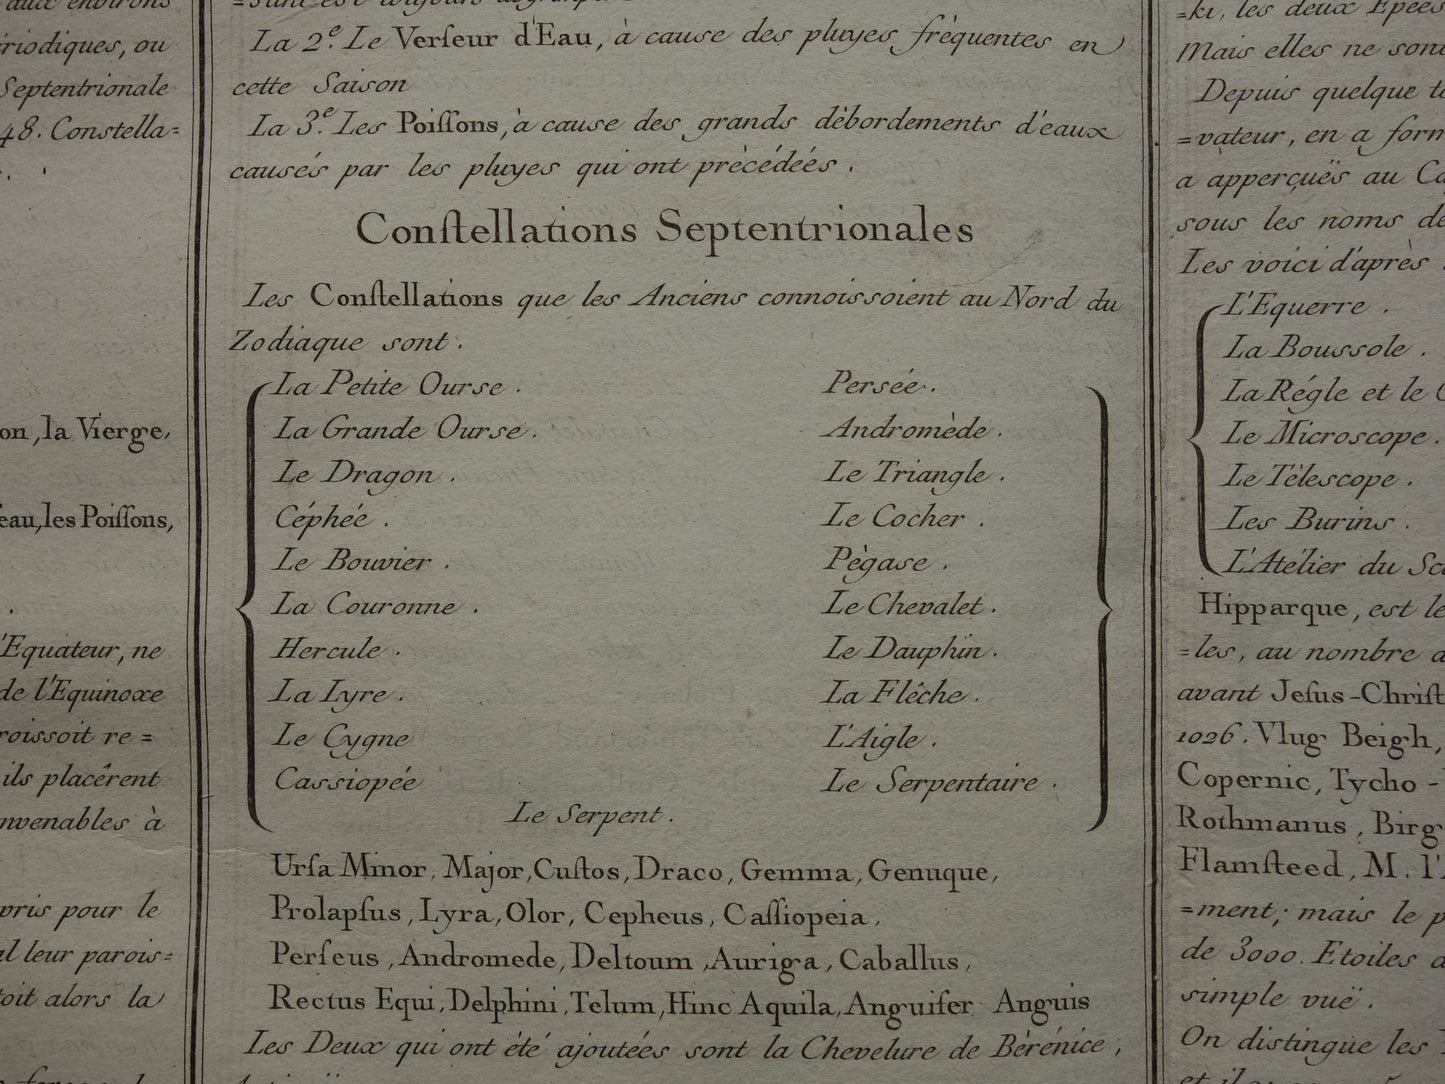 aux environs
riodiques, ou
Septentrionale
48. Constella=
on, la Vierge,
eau, les Poiſſons,
l'Equateur, ne
de l'Equinoxe
roissoit re=
ils placêrent
nvenables à
pris pour le
al leur parois=
toit alors la
La 2.e Le Verſeur d'Eau, à cause des pluyes frèquentes en
cette Saison
La 3.e Les Poiſſons, à cause des grands dèbordements d'eaux
causés par les pluyes qui ont prècédeés.
Conſtellations Septentrionales
Les Conſtellations que les Anciens connoissoient au Nord du
Zodiaque sont.
La Petite Ourse.
La Grande Ourse.
Le Dragon.
Céphée.
Le Bouvier.
La Couronne.
Hercule.
La Lyre.
Le Cygne
Cassiopée
Persée.
Andromède.
Le Triangle.
Le Cocher.
Pègase.
Le Chevalet.
Le Dauphin.
La Flêche.
L'Aigle.
Le Serpentaire.
Le Serpent.
Urſa Minor, Major, Cuſtos, Draco, Gemma, Genuque,
Prolapſus, Lyra, Olor, Cepheus, Caſſiopeia,
Perſeus, Andromede, Deltoum, Auriga, Caballus,
Rectus Equi, Delphini, Telum, Hinc Aquila, Anguifer Anguis
Les Deux qui ont èté ajoutées sont la Chevelure de Bérénice,
=ki, les deux Epées
Mais elles ne sont
Depuis quelque
=vateur, en a form
a apperçuës au
sous les noms de
Les voici d'après
L'Equerre.
La Boussole.
La Régle et le
Le Microscope.
Le Tèlescope.
Les Burins.
L'Atélier du Sc
Hipparque, est le
=les, au nombre
avant Jeſus-Chriſt
1026. Vlug Beigh,
Copernic, Tycho-
Rothmanus, Birg
Flamſteed, M. l'
=ment; mais le p
de 3000. Etoiles
simple vuë.
On distingue les